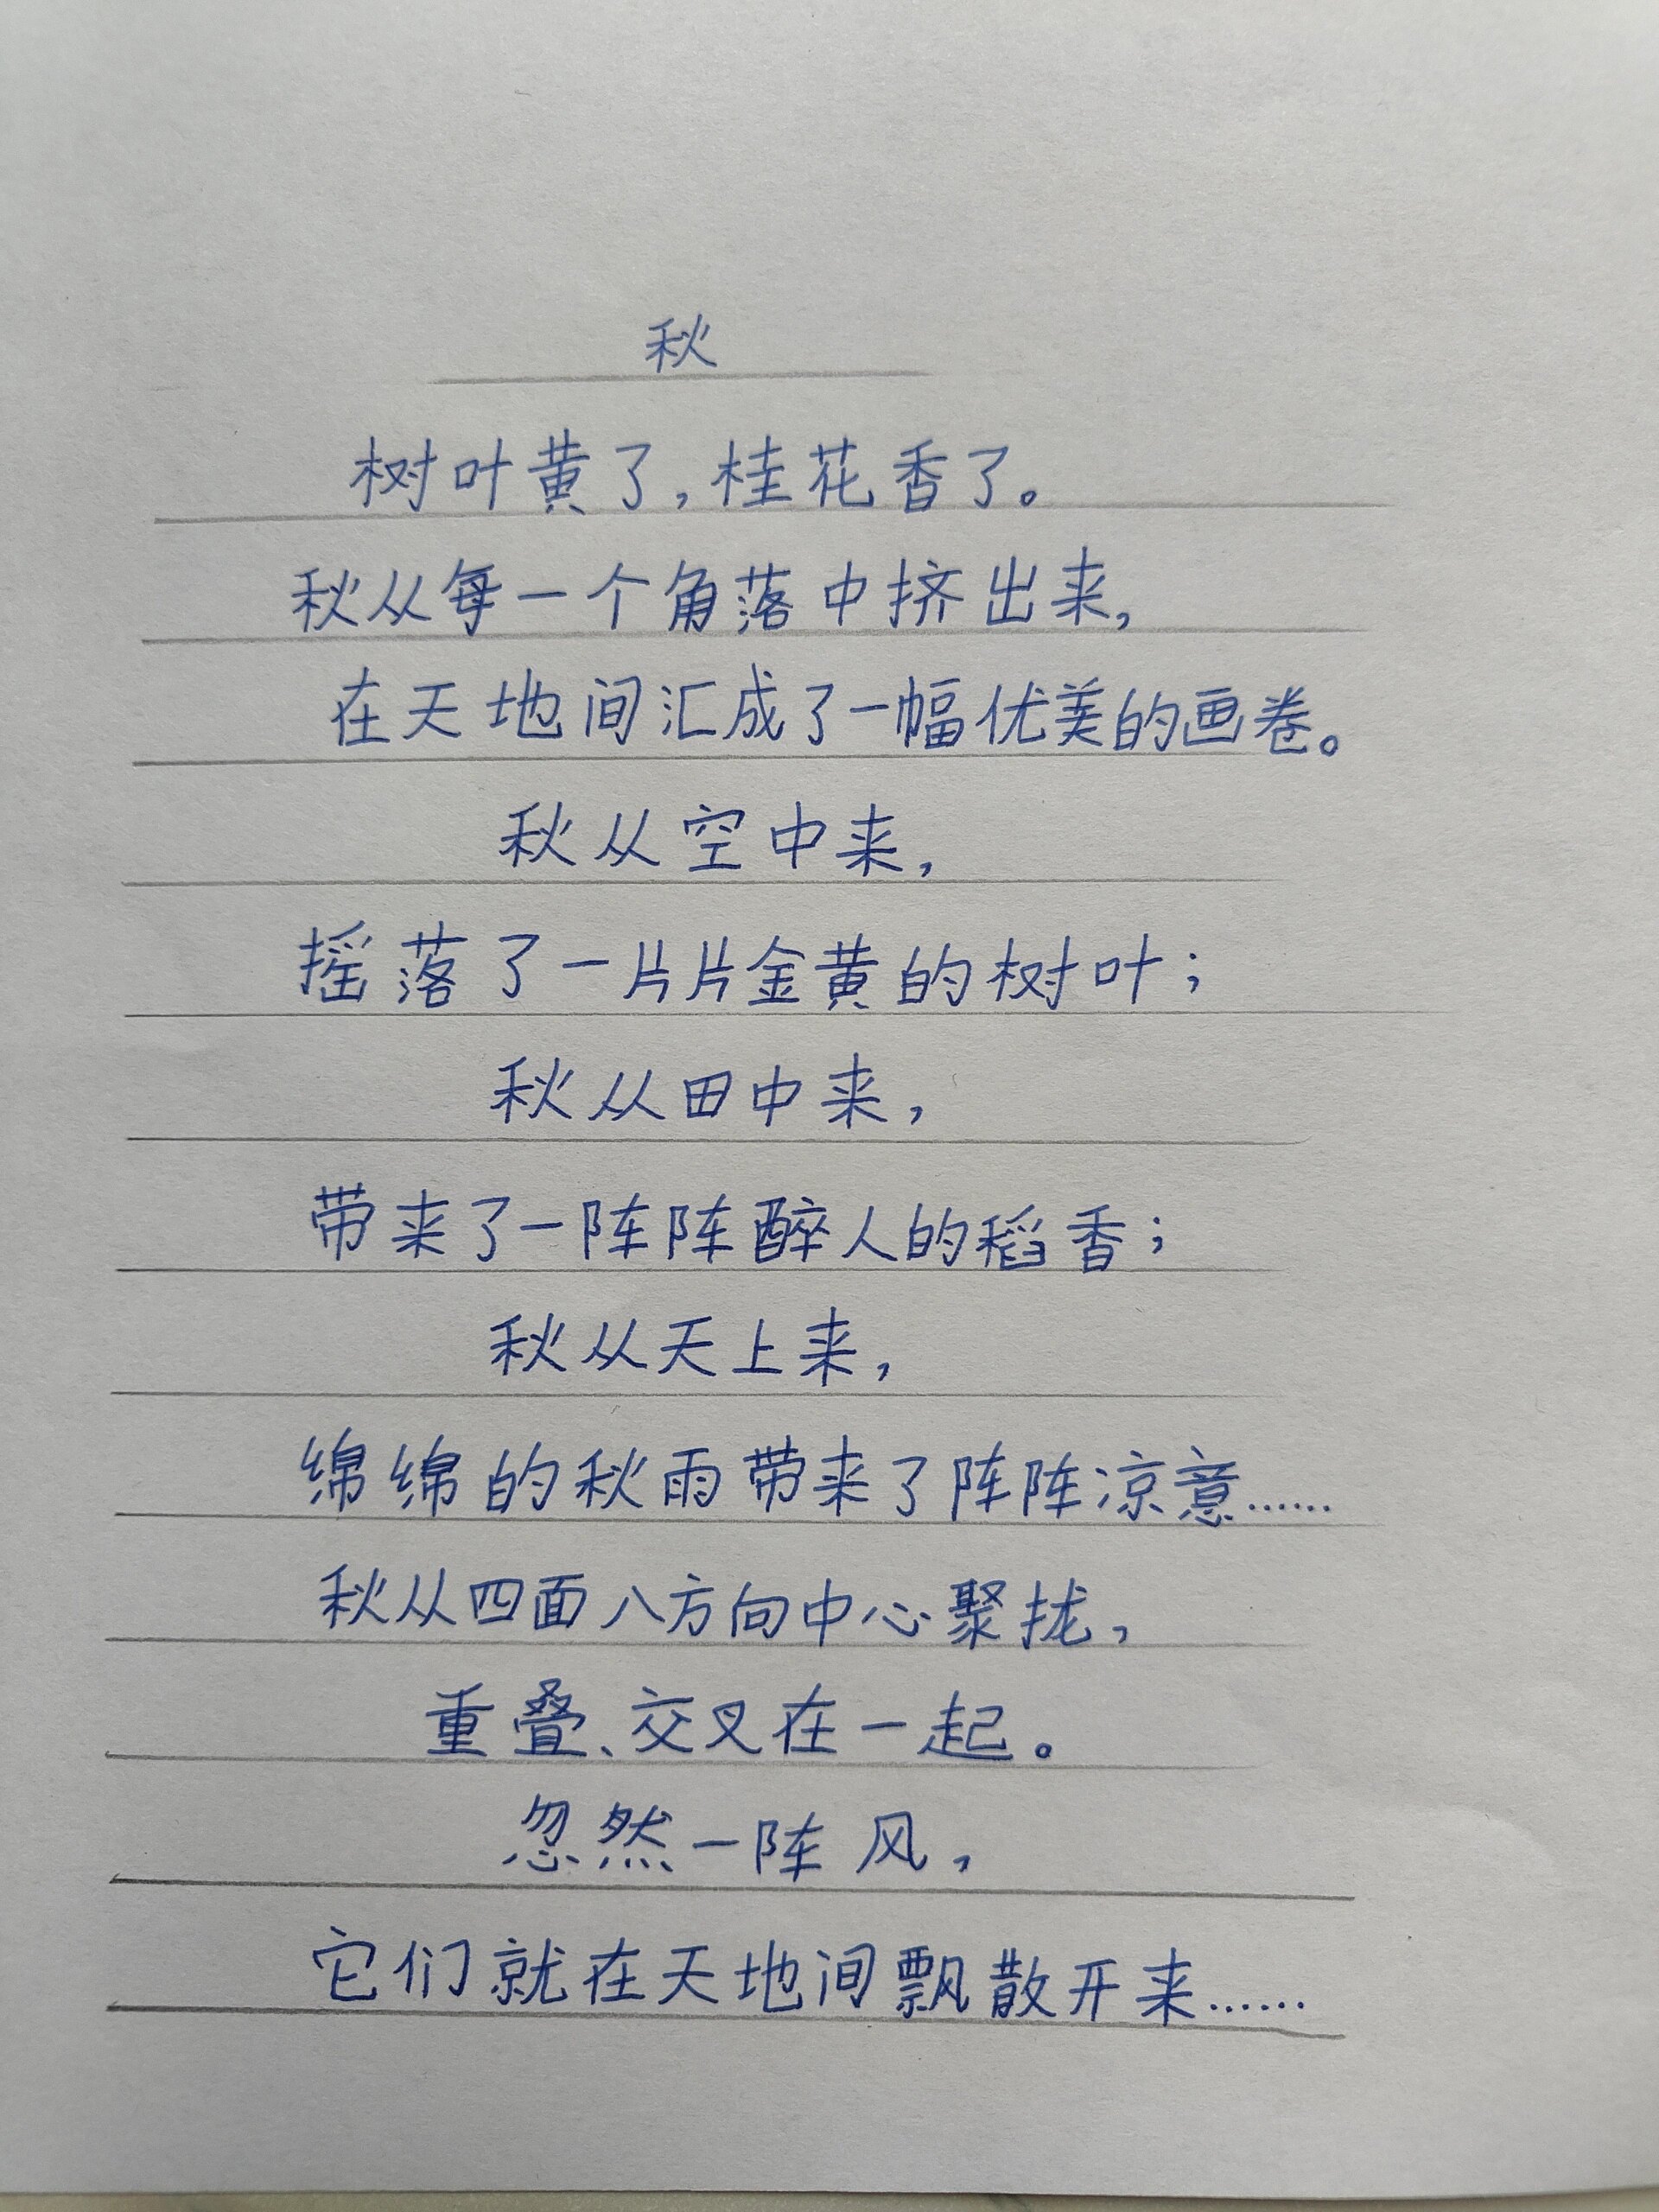 秋
树叶黄了,桂花香了。
秋从每一个角落中挤出来,
在天地间汇成了一幅优美的画卷。
秋从空中来,
摇落了一片片金黄的树叶;
秋从田中来,
带来了一阵阵醉人的稻香;
秋从天上来,
绵绵的秋雨带来了阵阵凉意……
秋从四面八方向中心聚拢,
重叠、交叉在一起。
忽然一阵风,
它们就在天地间飘散开来……